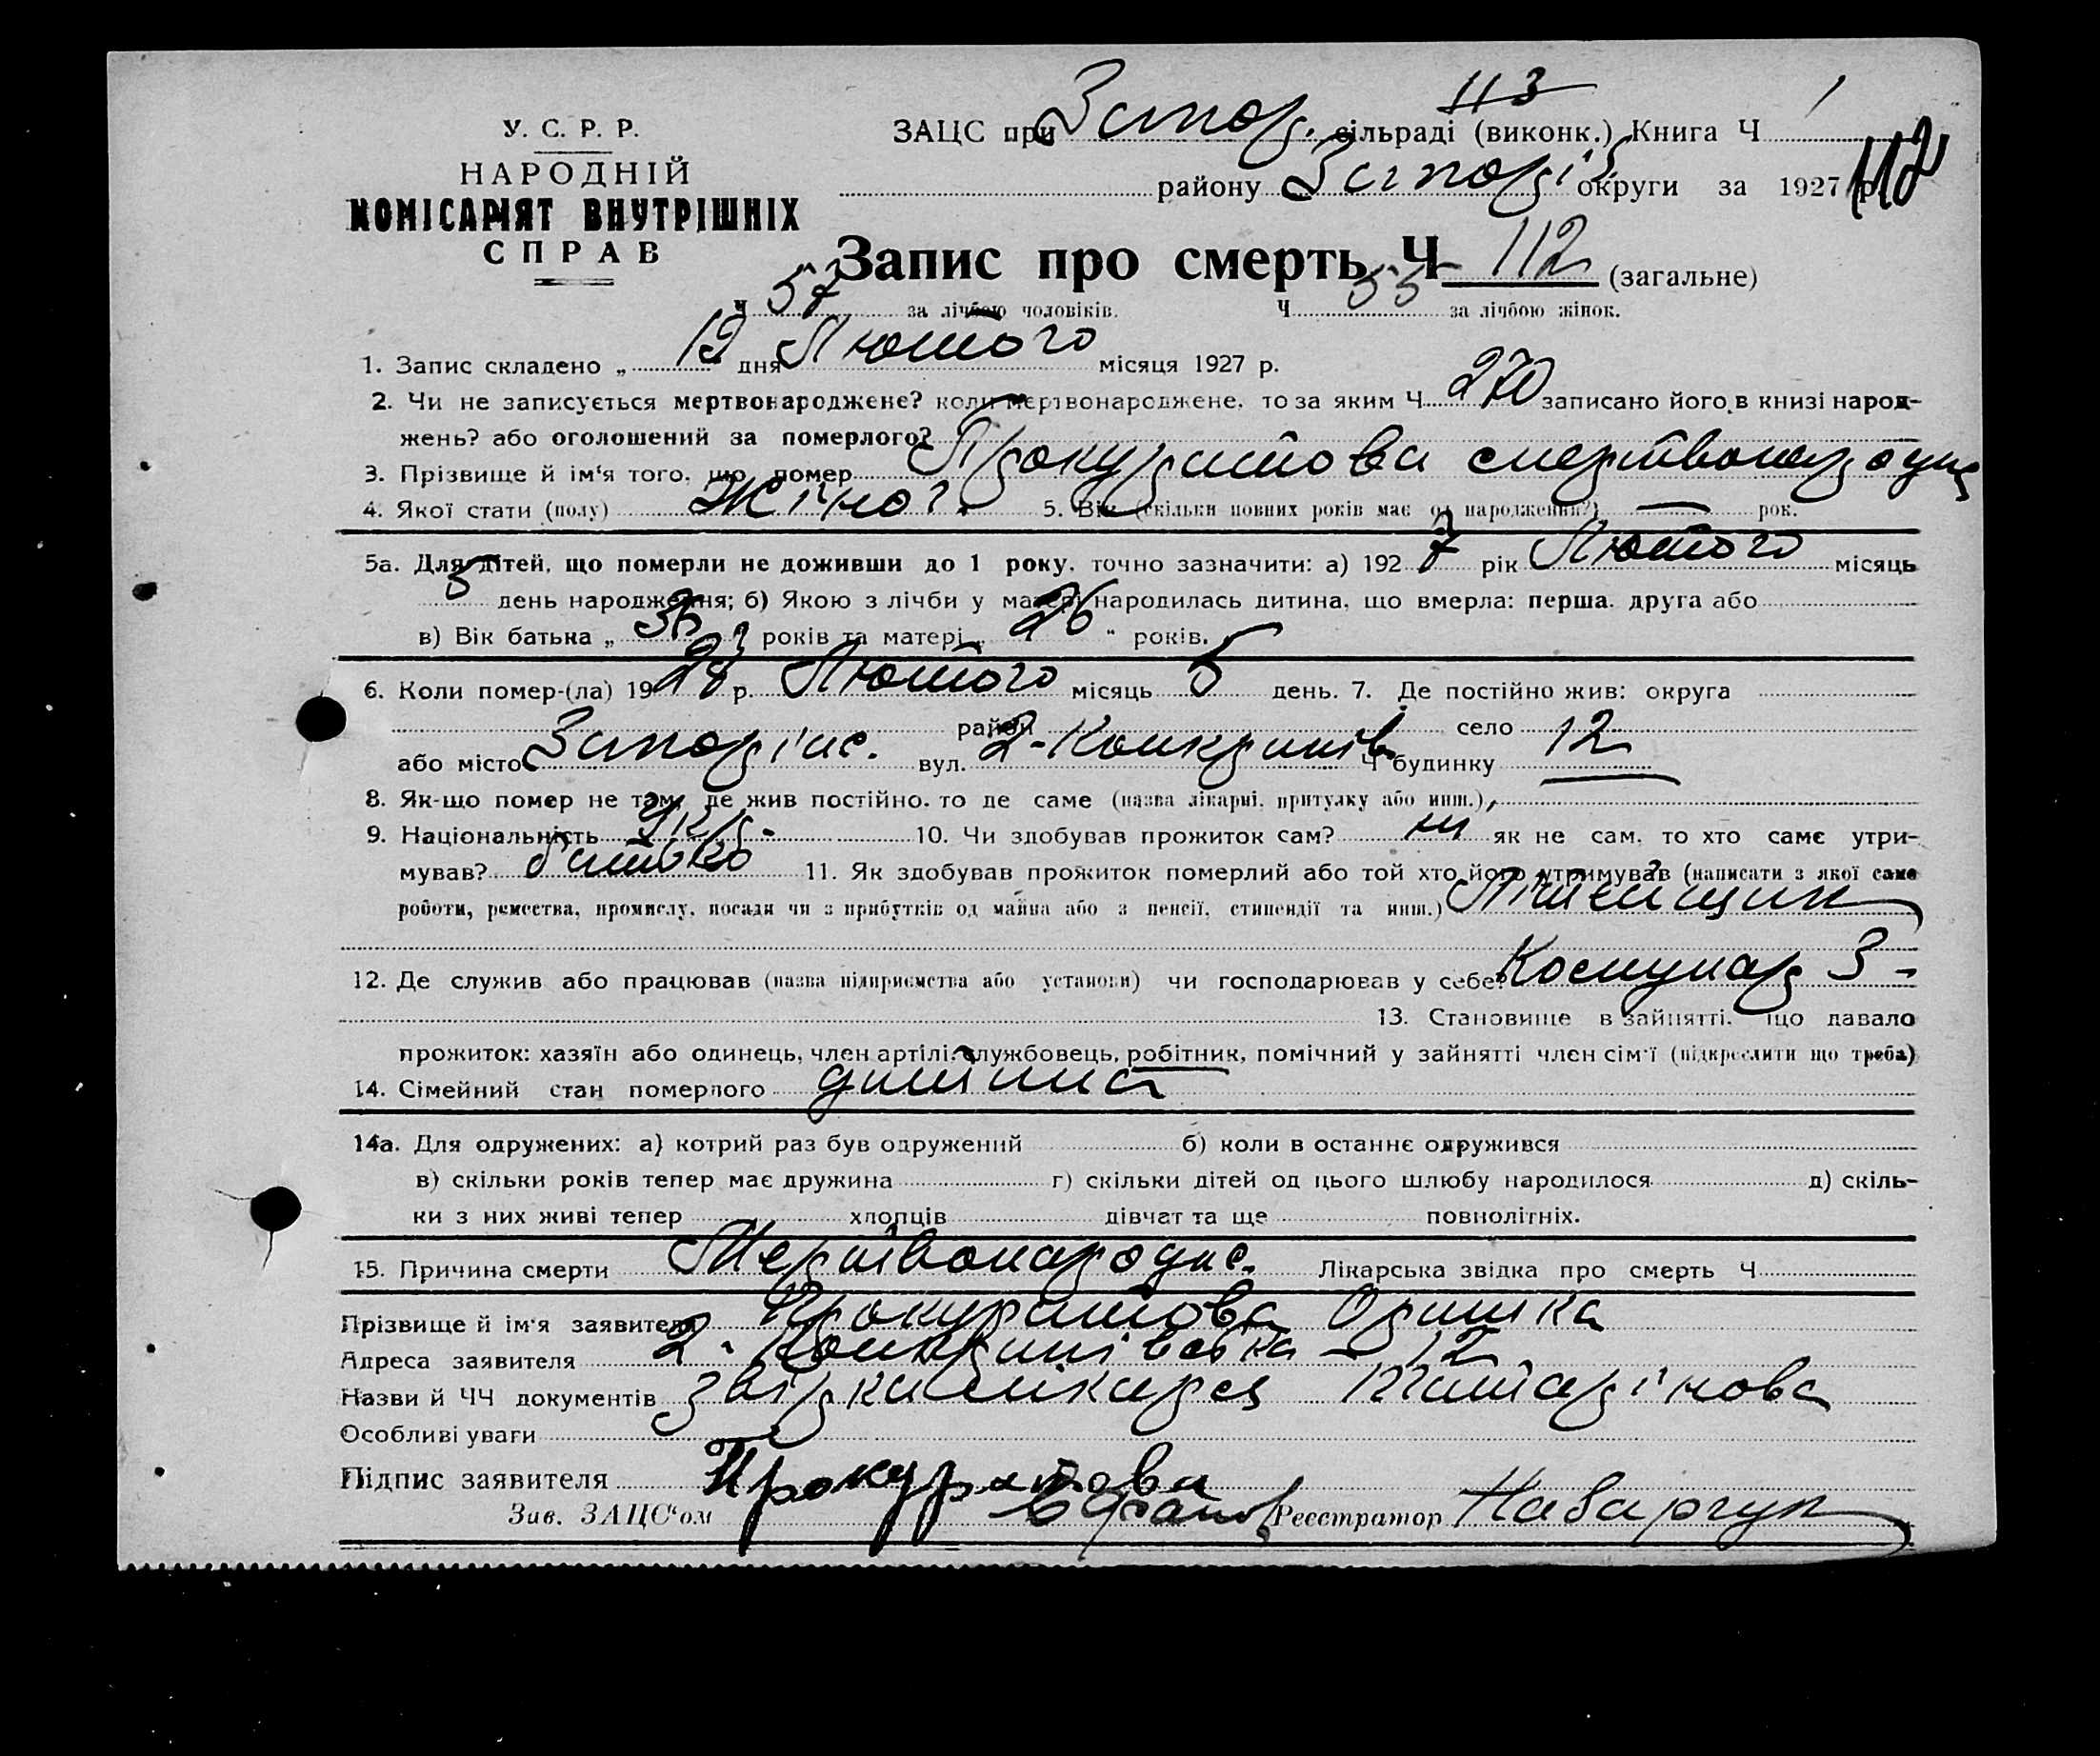 113
У. С. Р. Р.
ЗАЦС при Запор. сільраді (виконк.) Книга Ч 1
НАРОДНІЙ
району Запоріз округи за 1927 р. 112
КОМІСАРІЯТ ВНУТРІШНІХ
СПРАВ
Запис про смерть Ч 112 (загальне)
Ч 57 за лічбою чоловіків. Ч 55 за лічбою жінок.
1. Запис складено „ 12 дня Лютого місяця 1927 р.
2. Чи не записується мертвонароджене? коли мертвонароджене, то за яким Ч 270 записано його в книзі народ-
жень? або оголошений за померлого?
3. Прізвище й ім'я того, що помер Прокуратова
4. Якої стати (полу) Жіноі. 5. Вік (скільки повних років має од народження?) — рок.
5а. Для дітей, що померли не доживши до 1 року, точно зазначити: а) 1927 рік Лютого місяць
5 день народження; б) Якою з лічби у матері народилась дитина, що вмерла: перша, друга або
в) Вік батька „ років та матері „ 26 " років.
6. Коли помер-(ла) 19 р. Лютого місяць 5 день. 7. Де постійно жив: округа
район село
або місто вул. Ч будинку 12
8. Як-що помер не там, де жив постійно, то де саме (назва лікарні, притулку або инш.)
9. Національність Укр. 10. Чи здобував прожиток сам? ні як не сам, то хто саме утри-
мував? батько 11. Як здобував прожиток померлий або той хто його утримував (написати з якої саме
роботи, ремества, промислу, посади чи з прибутків од майна або з пенсії, стипендії та инш.)
12. Де служив або працював (назва підприємства або установи) чи господарював у себе? Комунар З-
13. Становище в зайнятті, що давало
прожиток: хазяїн або одинець, член артілі, службовець, робітник, помічний у зайнятті член сім'ї (підкреслити що треба)
14. Сімейний стан померлого дитина
14а. Для одружених: а) котрий раз був одружений б) коли в останнє одружився
в) скільки років тепер має дружина г) скільки дітей од цього шлюбу народилося д) скіль-
ки з них живі тепер хлопців дівчат та ще повнолітніх.
15. Причина смерти Мертвонародж. Лікарська звідка про смерть Ч
Прізвище й ім'я заявителя Прокуратова Оришка
Адреса заявителя 2. 12
Назви й ЧЧ документів
Особливі уваги
Підпис заявителя Прокуратова
Зав. ЗАЦС'ом Реєстратор